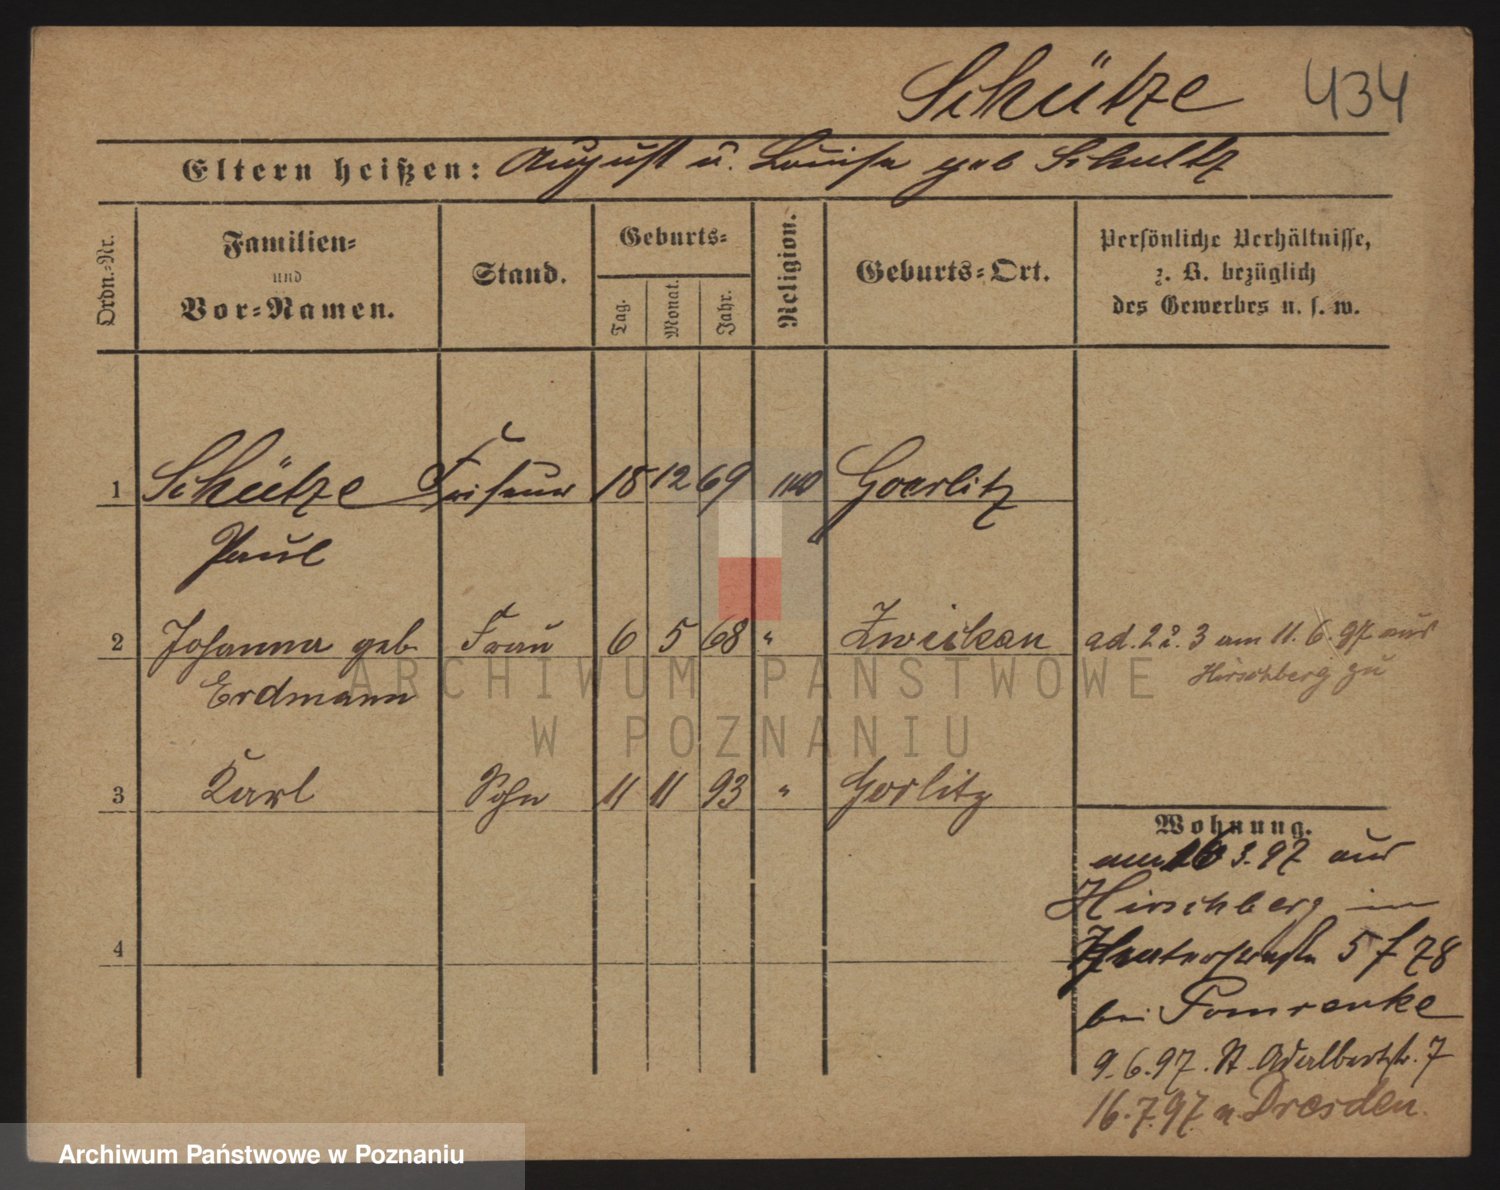 Schütze 434
Eltern heißen: August u. Louise geb Schultz
Ordn.-Nr.
Familien-
und
Vor-Namen.
Stand.
Geburts-
Tag.
Monat.
Jahr.
Religion.
Geburts-Ort.
Persönliche Verhältnisse,
z. B. bezüglich
des Gewerbes u. s. w.
1 Schütze Friseur 18 12 69 Goerlitz
Paul
2 Johanna geb. Frau 6 5 68 " Zwickau ad. 2 u. 3 am 11. 6. 97 aus
Erdmann Hirschberg zu
3 Karl Sohn 11 11 93 " Gorlitz
Wohnung.
am 16 3. 97 aus
Hirschberg in
5 f 78
bei Pomrenke
9. 6. 97. St. Adalbertstr. 7
16. 7. 97 n. Dresden.
4
ARCHIWUM PAŃSTWOWE
W POZNANIU
Archiwum Państwowe w Poznaniu